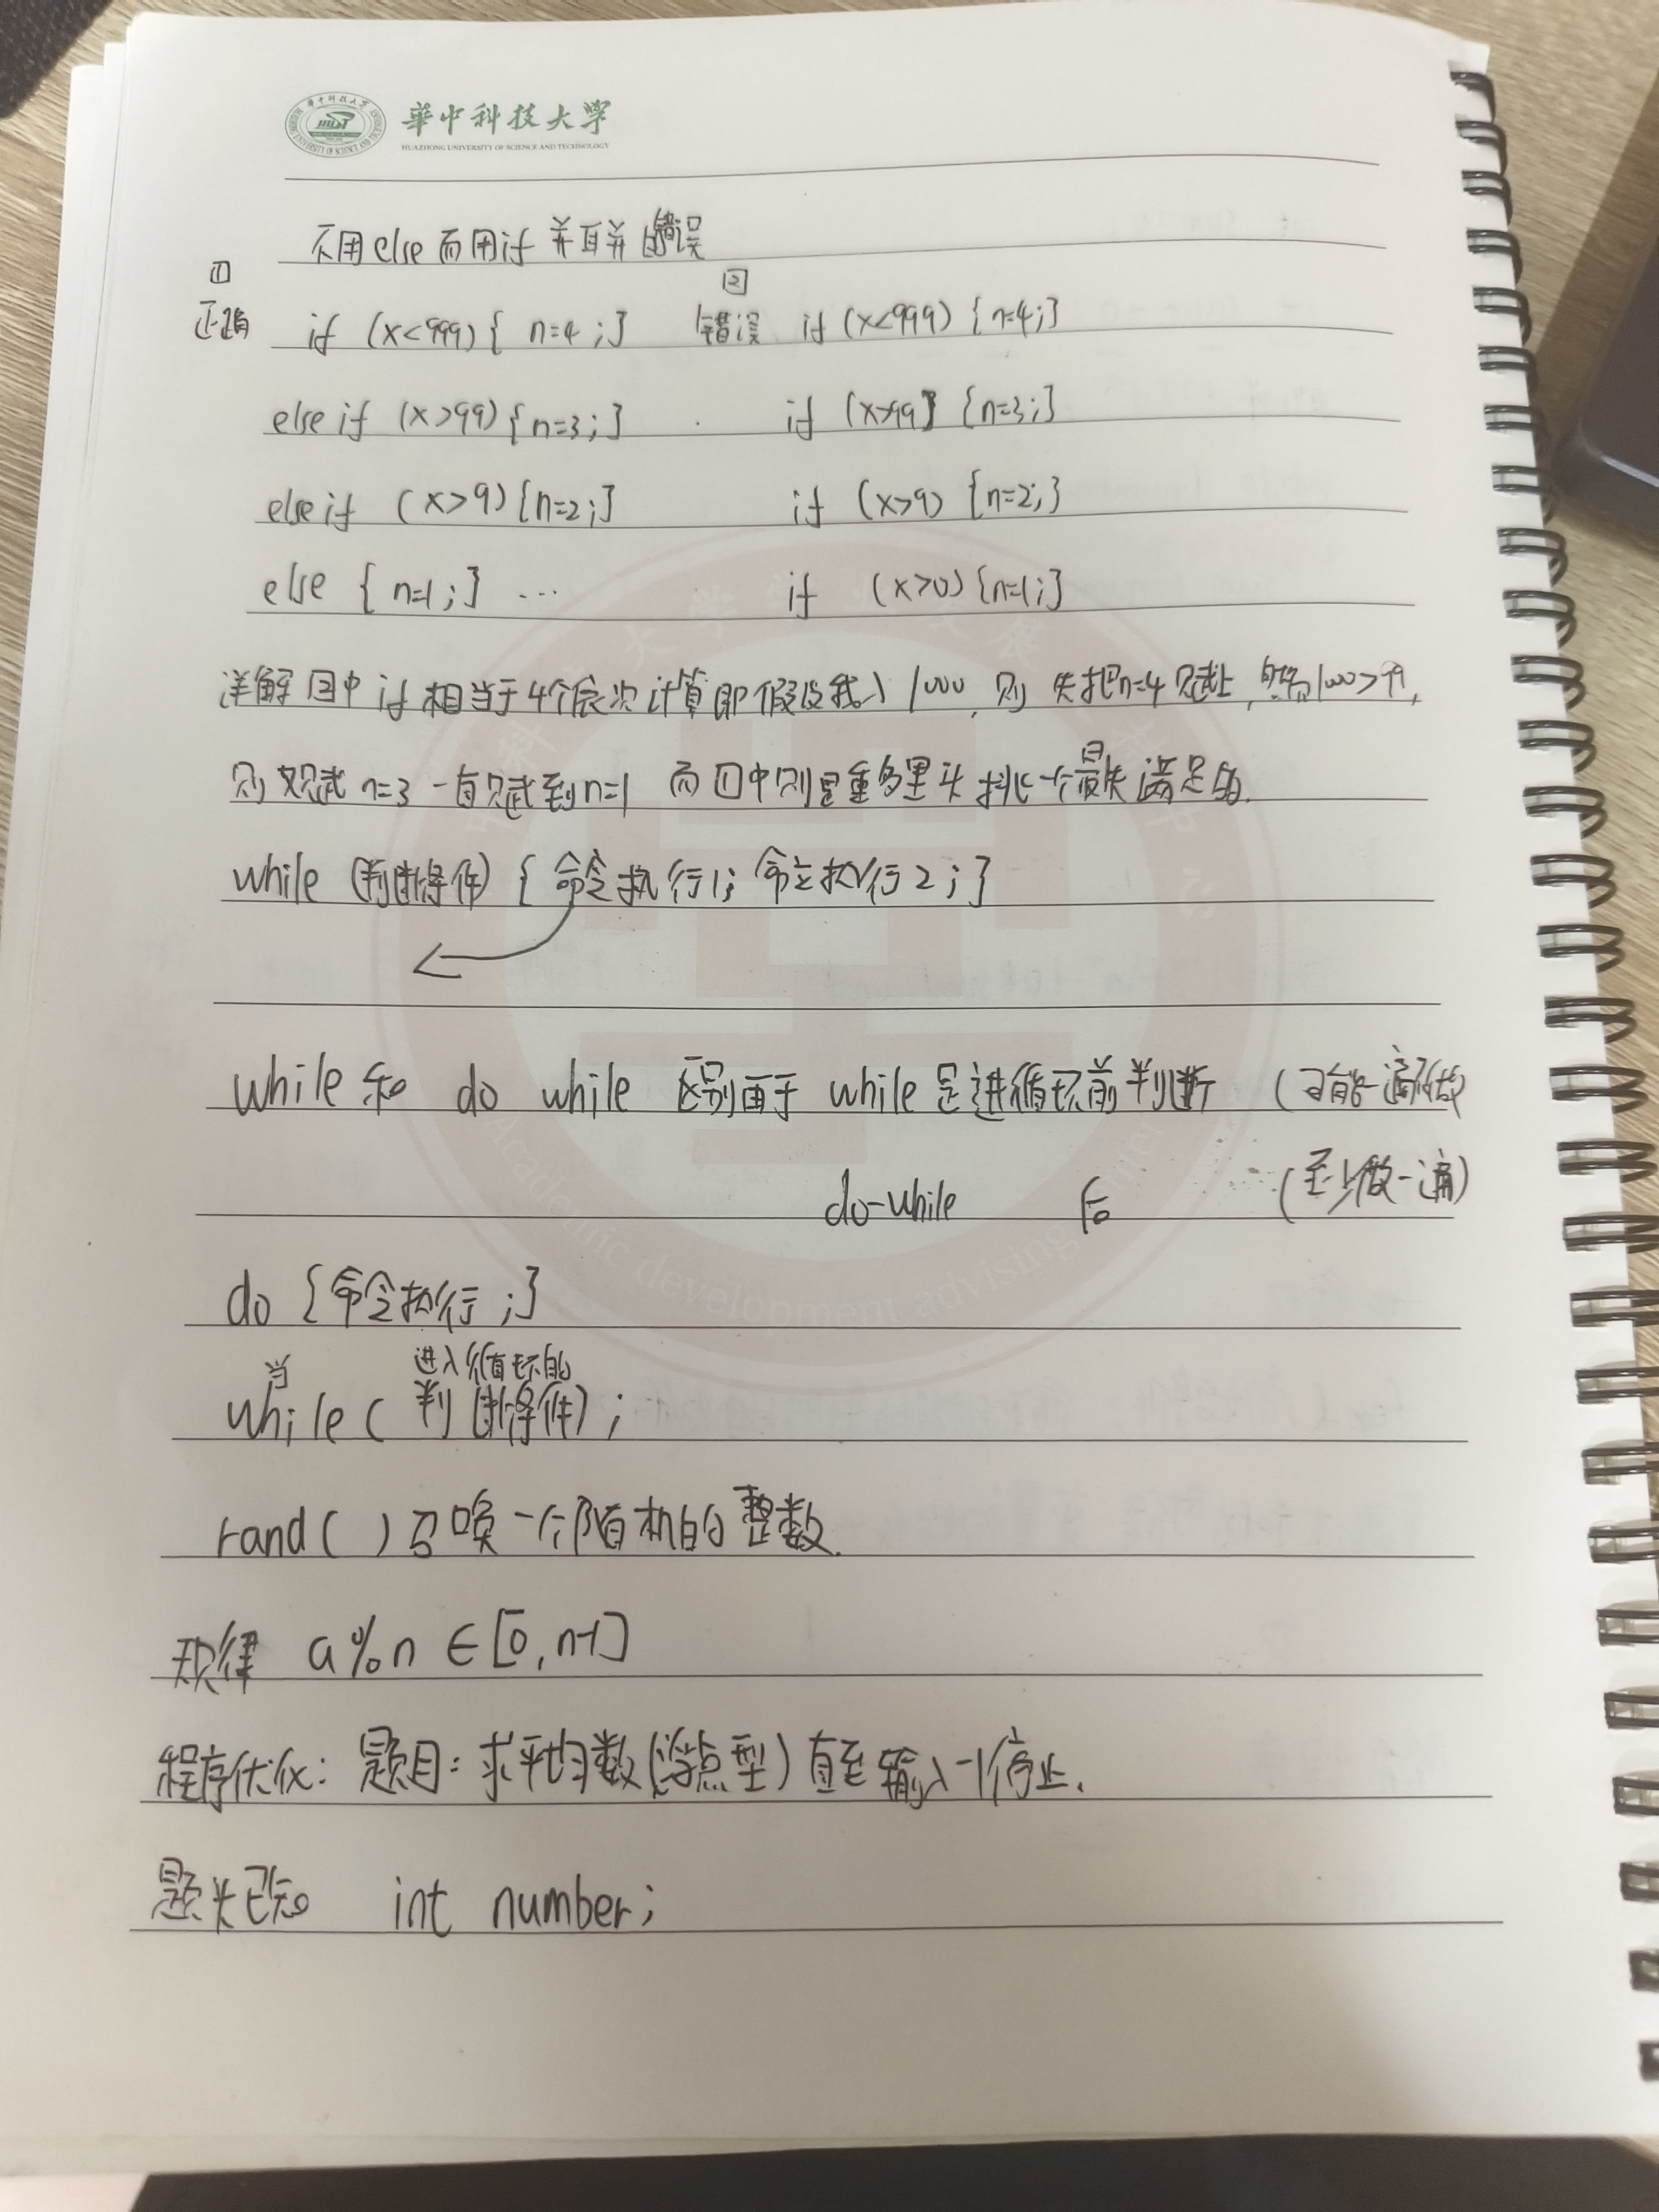 華中科技大学
HUAZHONG UNIVERSITY OF SCIENCE AND TECHNOLOGY
不用else而用if 并且并 错误
① ②
正确 if (x<999) { n=4 ;} 错误 if (x<999) {n=4;}
else if (x>99) {n=3;} if (x>99} {n=3;}
else if (x>9) {n=2;} if (x>9) {n=2;}
else { n=1;} ... if (x>0) {n=1;}
详解 ②中 if 相当于4个依次计算即假设我入1000,则 先把n=4赋上, 1000>99,
则又赋 n=3 一直赋到n=1 而①中则是里头挑一个最先满足的.
while (判断条件) { 命令执行1; 命令执行2;}
while 和 do while 区别在于 while 是进循环前判断 (可能一遍不做
do-while 后 (至少做一遍)
do {命令执行;}
当 进入循环的
while ( 判断条件) ;
rand( ) 召唤一个随机的整数.
规律 a%n ∈[0,n-1]
程序优化: 题目: 求平均数(浮点型) 直至输入-1停止.
题头已知 int number;
Academic development advising